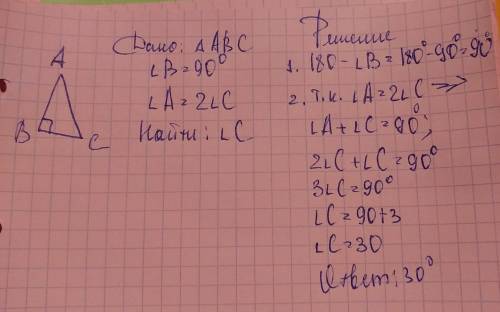 Дано: △ABC
∠B=90°
∠A=2∠C
Найти: ∠C
A
B
C
Решение
1. 180-∠B=180°-90°=90°
2. т.к. ∠A=2∠C =>
∠A+∠C=90°;
2∠C+∠C=90°
3∠C=90°
∠C=90÷3
∠C=30
Ответ: 30°